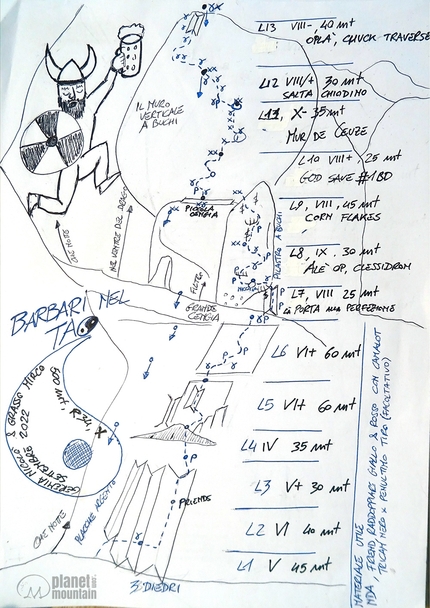 L13 VIII-, 40 mt
OPLÀ, CHUCK TRAVERSE
L12 VIII+ 30 mt
SALTA CHIODINO
L11, X- 35mt
MUR DE CEUZE
L10 VIII+, 25 mt
GOD SAVE #1BD
L9, VIII, 45 mt
CORN FLAKES
L8, IX. 30 mt
ALE' OP, CLESSIDRON
L7, VIII 25 mt
LA PORTA PERFEZIONE
L6 VI+ 60 mt
L5 VI+ 60 mt
L4 IV 35 mt
L3 V+ 30 mt
L2 VI 40 mt
L1 V 45 mt
IL MURO
VERTICALE
A BUCHI
PICCOLA
CENGIA
PILASTRO A BUCHI
NEL VENTRE DEL
CHE NOTTE
GRANDE
CENGIA
BARBARI NEL
TAO
GEREMIA NICOLÒ & GRASSO MIRCO
SETTEMBRE 2022
PLACCHE ARGENTO
CHE NOTTE
FRIENDS
3 DIEDRI
MATERIALE UTILE
NDA, FRIEND, RADDOPPIARE GIALLO & ROSSO CON CAMALOT
X PENULTIMO TIRO (FACOLTATIVO)
planet
mountain
.com